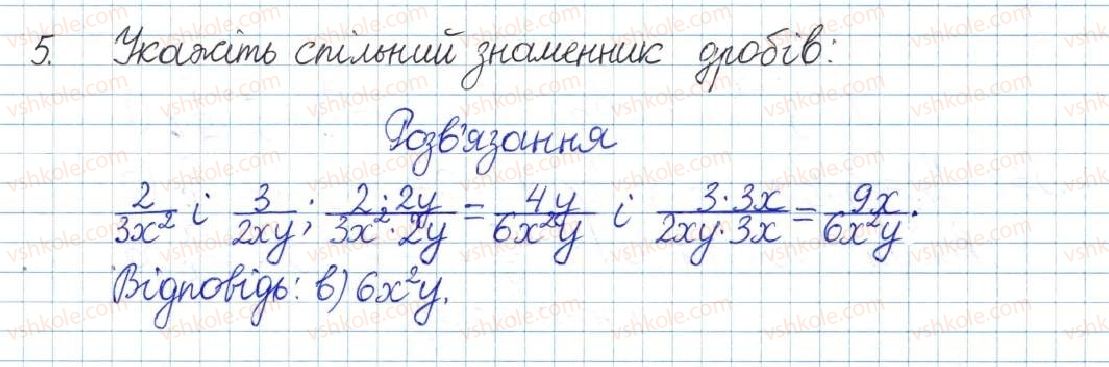 5. Укажіть спільний знаменник дробів:
Розв'язання
2/3x² і 3/2xy; 2·2y/3x²·2y = 4y/6x²y і 3·3x/2xy·3x = 9x/6x²y.
Відповідь: в) 6x²y.